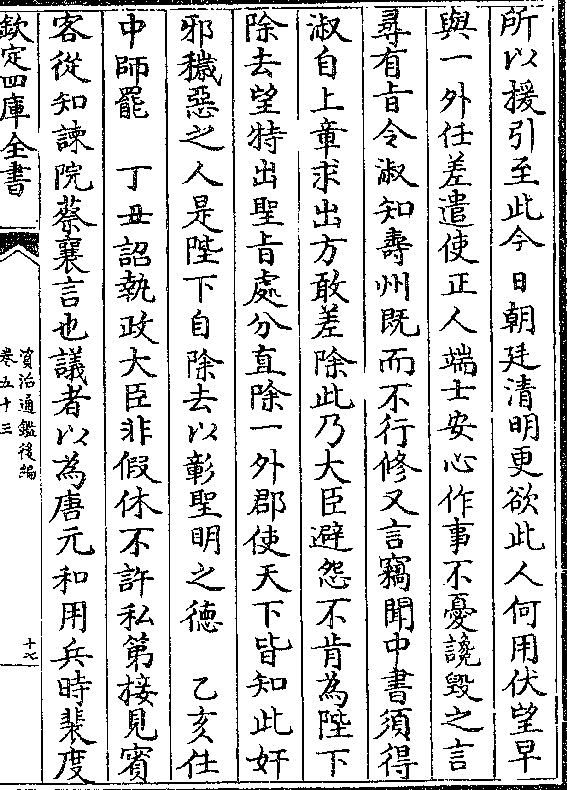 所以援引至此今日朝廷清明更欲此人何用伏望早
與一外任差遣使正人端士安心作事不憂讒毀之言
尋有旨令淑知壽州既而不行修又言竊聞中書須得
淑自上章求出方敢差除此乃大臣避怨不肯為陛下
除去望特出聖旨處分直除一外郡使天下皆知此奸
邪穢惡之人是陛下自除去以彰聖明之德　乙亥仕
中師罷　丁丑詔執政大臣非假休不許私第接見賓
客從知諫院蔡襄言也議者以為唐元和用兵時裴度
欽定四庫全書
資治通鑑後編
卷五十三
十七